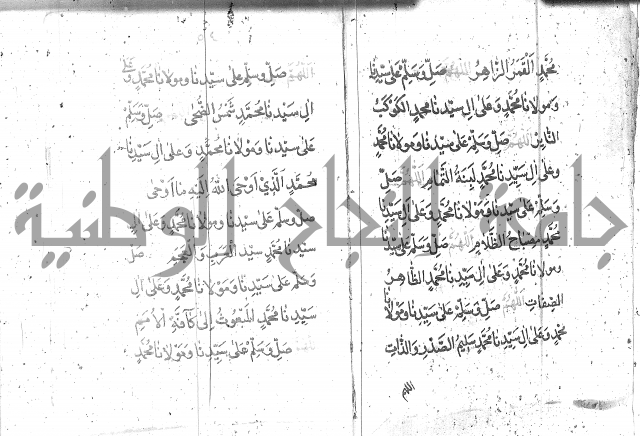 مُحَمَّدٍ الْقَمَرُ الزَّاهِرُ اللَّهُمَّ صَلِّ وَسَلِّمْ عَلَى سَيِّدِنَا
وَمَوْلَانَا مُحَمَّدٍ وَعَلَى آلِ سَيِّدِنَا مُحَمَّدٍ الْكَوْكَبُ
اللَّهُمَّ صَلِّ وَسَلِّمْ عَلَى سَيِّدِنَا وَمَوْلَانَا مُحَمَّدٍ
وَعَلَى آلِ سَيِّدِنَا مُحَمَّدٍ لَبِنَةُ التَّمَامِ اللَّهُمَّ صَلِّ
وَسَلِّمْ عَلَى سَيِّدِنَا وَمَوْلَانَا مُحَمَّدٍ وَعَلَى آلِ سَيِّدِنَا
مُحَمَّدٍ مِصْبَاحُ الظَّلَامِ اللَّهُمَّ صَلِّ وَسَلِّمْ عَلَى سَيِّدِنَا
وَمَوْلَانَا مُحَمَّدٍ وَعَلَى آلِ سَيِّدِنَا مُحَمَّدٍ الطَّاهِرُ
الصِّفَاتِ اللَّهُمَّ صَلِّ وَسَلِّمْ عَلَى سَيِّدِنَا وَمَوْلَانَا
مُحَمَّدٍ وَعَلَى آلِ سَيِّدِنَا مُحَمَّدٍ سَلِيمُ الصَّدْرِ وَالذَّاتِ
اللهم
اللَّهُمَّ صَلِّ وَسَلِّمْ عَلَى سَيِّدِنَا وَمَوْلَانَا مُحَمَّدٍ وَعَلَى
آلِ سَيِّدِنَا مُحَمَّدٍ شَمْسُ الضُّحَى صَلِّ وَسَلِّمْ
عَلَى سَيِّدِنَا وَمَوْلَانَا مُحَمَّدٍ وَعَلَى آلِ سَيِّدِنَا
مُحَمَّدٍ الَّذِي أَوْحَى اللَّهُ إِلَيْهِ مَا أَوْحَى
صَلِّ وَسَلِّمْ عَلَى سَيِّدِنَا وَمَوْلَانَا مُحَمَّدٍ وَعَلَى آلِ
سَيِّدِنَا مُحَمَّدٍ سَيِّدُ الْعَرَبِ وَالْعَجَمِ صَلِّ
وَسَلِّمْ عَلَى سَيِّدِنَا وَمَوْلَانَا مُحَمَّدٍ وَعَلَى آلِ
سَيِّدِنَا مُحَمَّدٍ الْمَبْعُوثُ إِلَى كَافَّةِ الْأُمَمِ
صَلِّ وَسَلِّمْ عَلَى سَيِّدِنَا وَمَوْلَانَا مُحَمَّدٍ
جامعة النجاح الوطنية